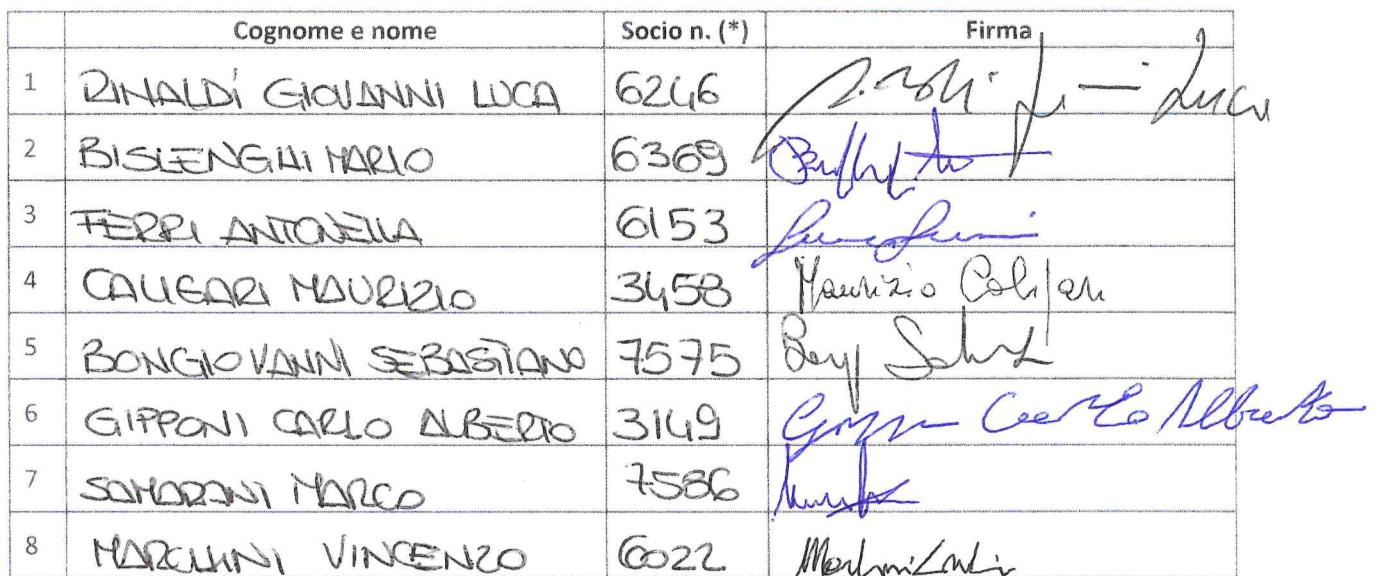 Cognome e nome Socio n. (*) Firma
1 RINALDI GIOVANNI LUCA 6246 Luca
2 BISLENGHI MARIO 6369
3 FERRI ANTONELLA 6153
4 CALIGARI MAURIZIO 3458 Maurizio
5 BONGIOVANNI SEBASTIANO 7575
6 GIPPONI CARLO ALBERTO 3149 Carlo Alberto
7 SAMARANI MARCO 7586
8 MARCHINI VINCENZO 6022